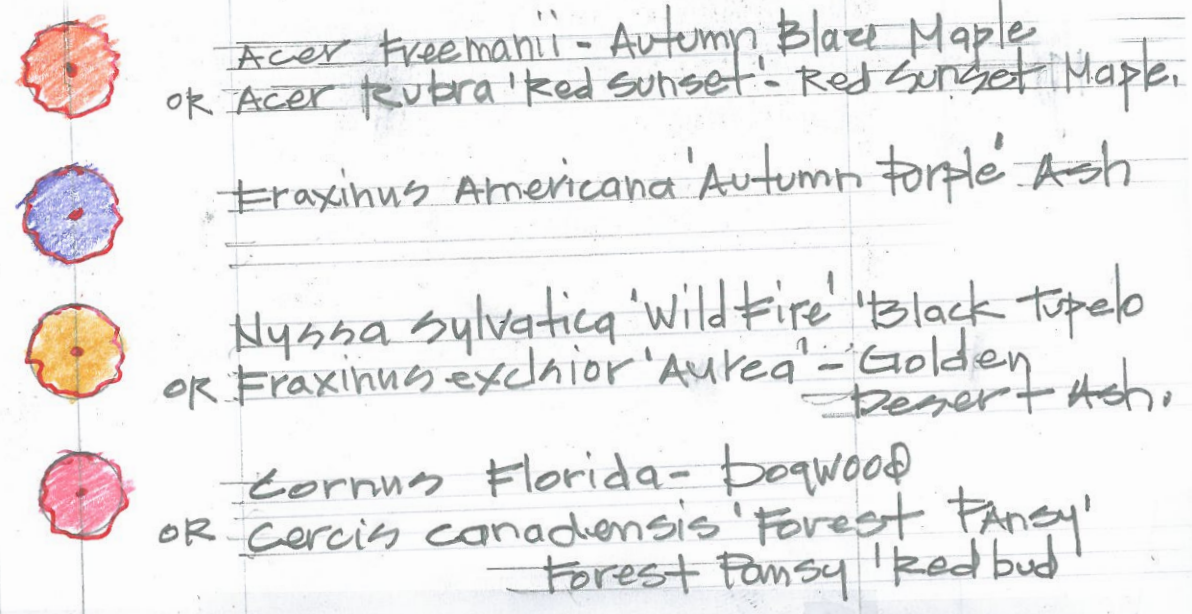 Acer Freemanii - Autumn Blaze Maple
OR Acer Rubra 'Red Sunset' - Red Sunset Maple.
Fraxinus Americana 'Autumn Purple' Ash
Nyssa sylvatica 'Wildfire' 'Black Tupelo
OR Fraxinus exclsior 'Aurea' - Golden
Desert Ash.
Cornus Florida - Dogwood
OR Cercis canadensis 'Forest Pansy'
Forest Pansy 'Redbud'